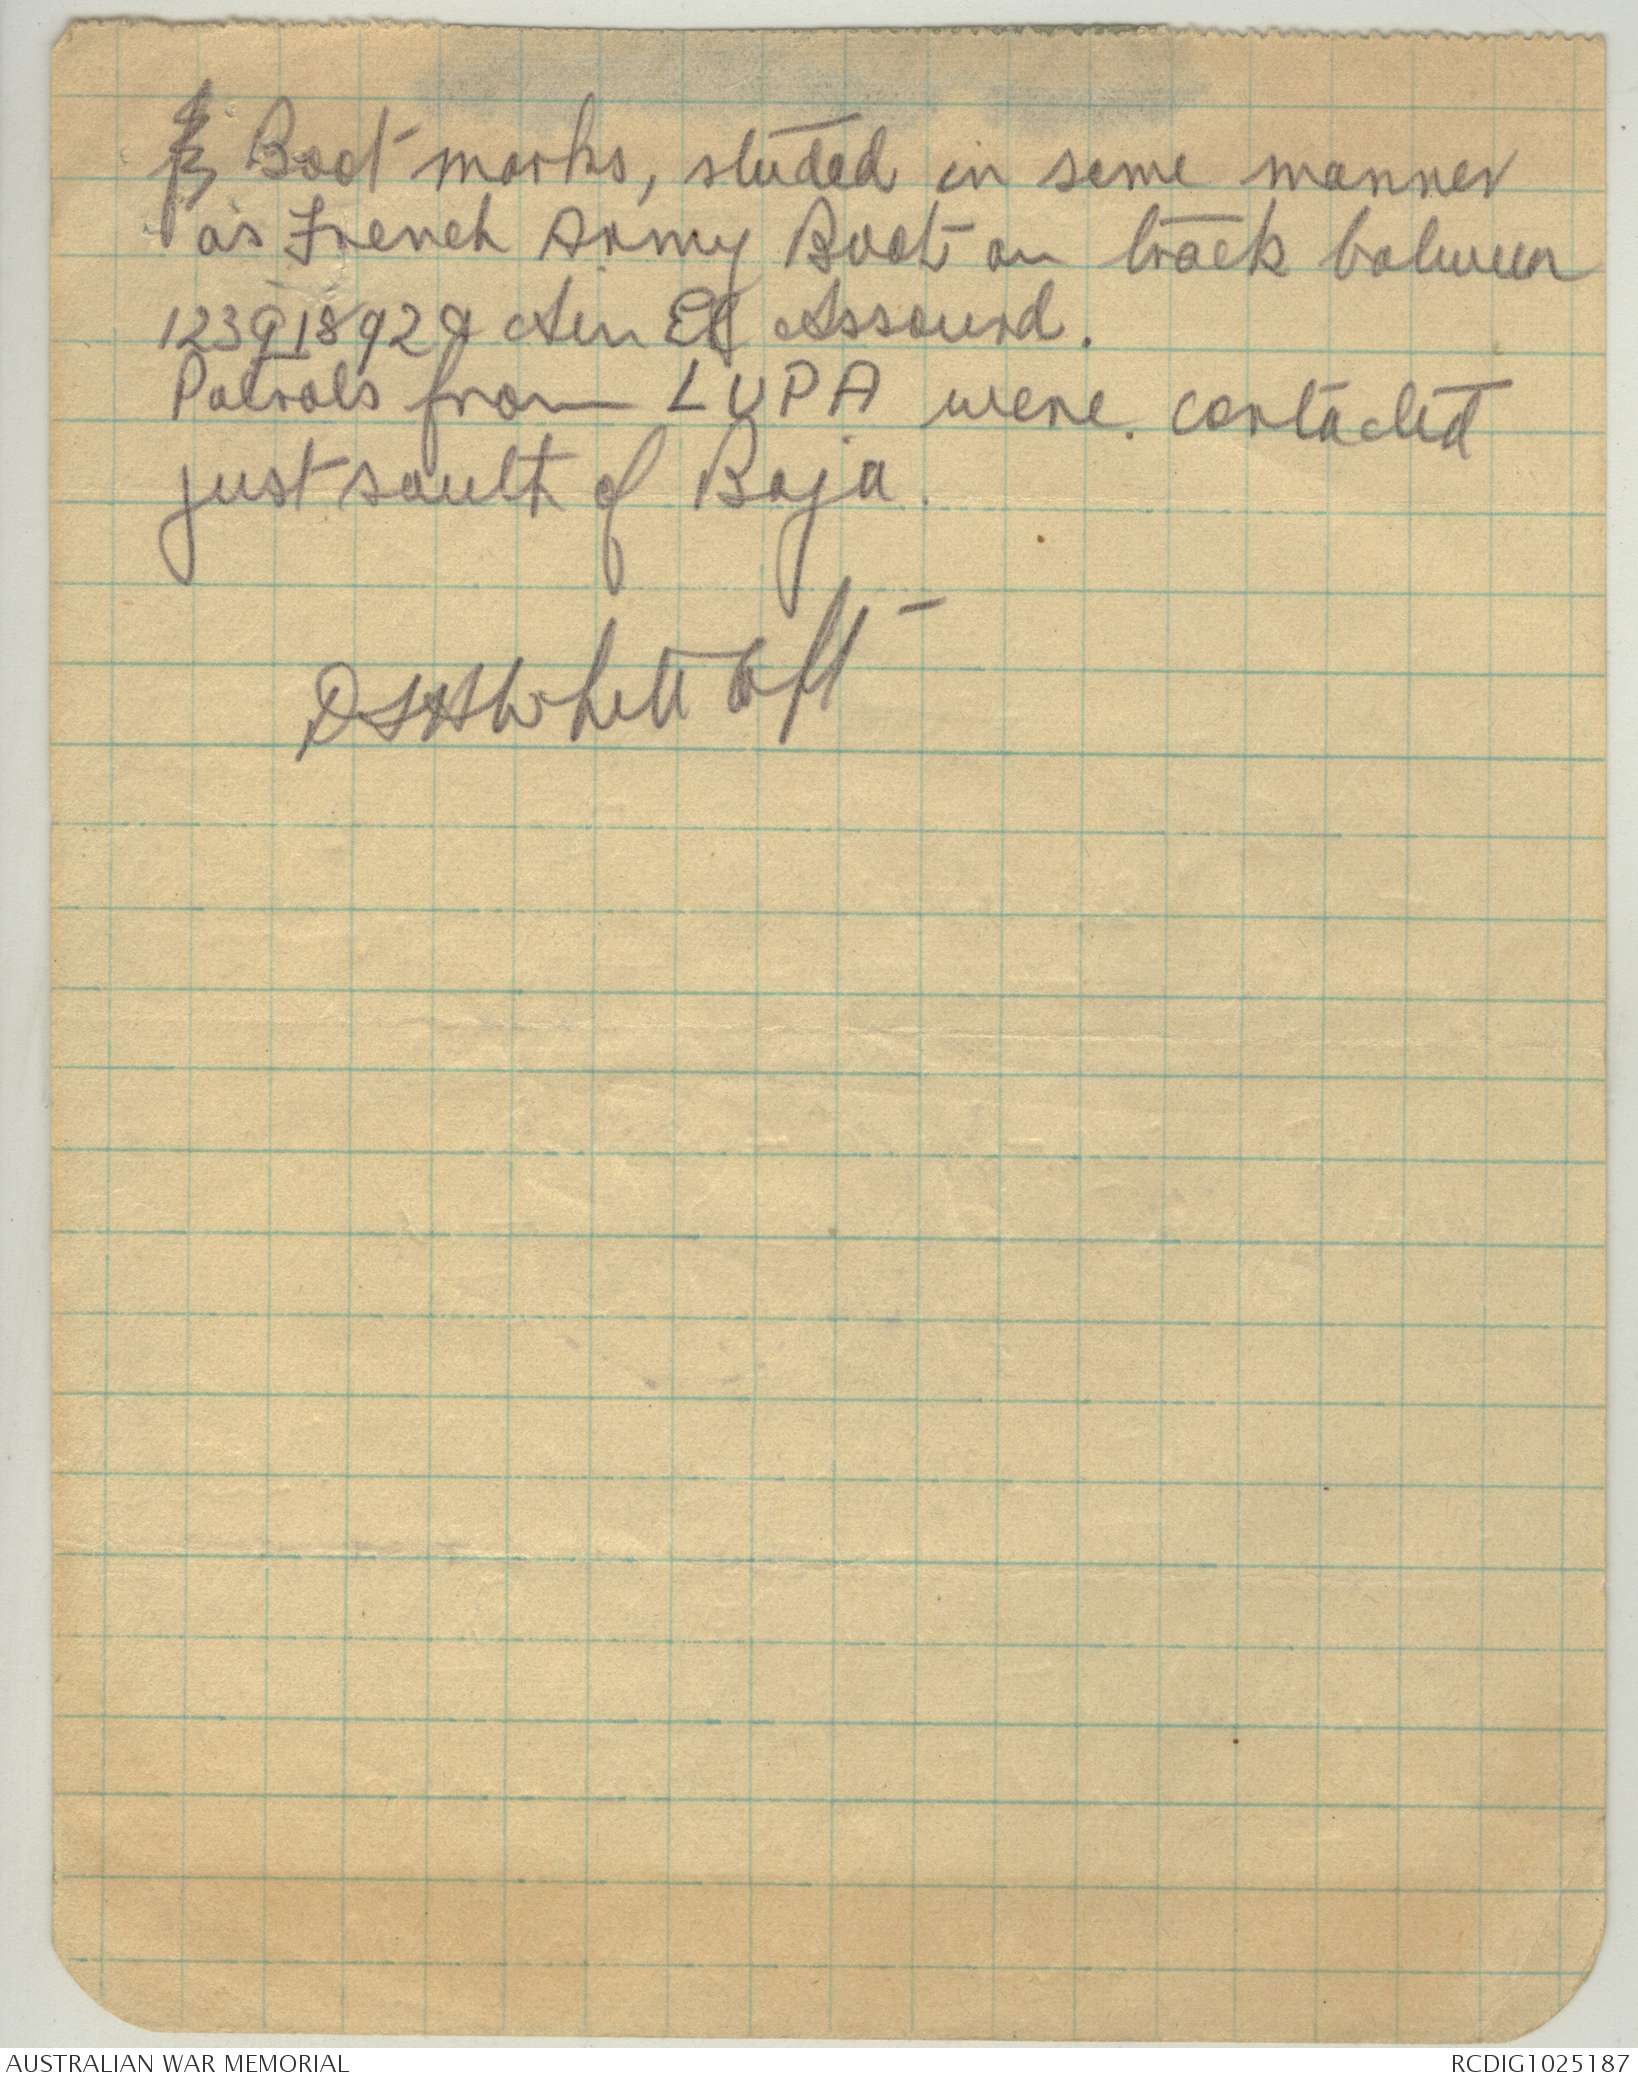 Boot marks, studed in same manner
as French Army Boot on track between
12391892 & Ain El Assourd.
Patrols from LUPA were. contacted
just south of Baja.
AUSTRALIAN WAR MEMORIAL
RCDIG1025187